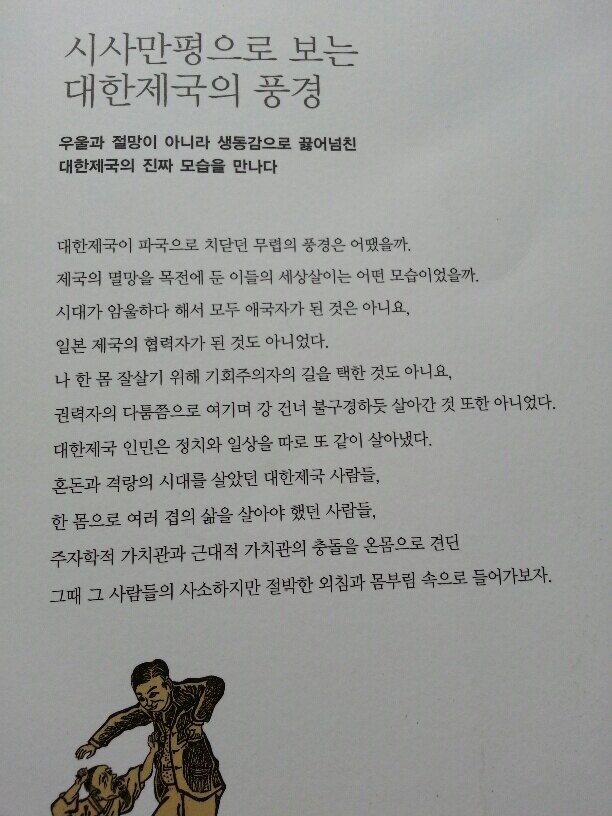 시사만평으로 보는
대한제국의 풍경
우울과 절망이 아니라 생동감으로 끓어넘친
대한제국의 진짜 모습을 만나다
대한제국이 파국으로 치닫던 무렵의 풍경은 어땠을까.
제국의 멸망을 목전에 둔 이들의 세상살이는 어떤 모습이었을까.
시대가 암울하다 해서 모두 애국자가 된 것은 아니요,
일본 제국의 협력자가 된 것도 아니었다.
나 한 몸 잘살기 위해 기회주의자의 길을 택한 것도 아니요,
권력자의 다툼쯤으로 여기며 강 건너 불구경하듯 살아간 것 또한 아니었다.
대한제국 인민은 정치와 일상을 따로 또 같이 살아냈다.
혼돈과 격랑의 시대를 살았던 대한제국 사람들,
한 몸으로 여러 겹의 삶을 살아야 했던 사람들,
주자학적 가치관과 근대적 가치관의 충돌을 온몸으로 견딘
그때 그 사람들의 사소하지만 절박한 외침과 몸부림 속으로 들어가보자.